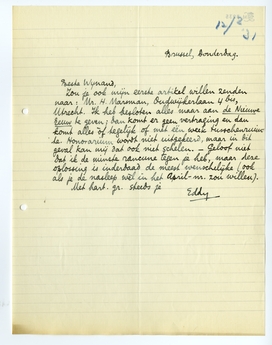 12/2
31
Brussel, Donderdag.
Beste Wijnand,
Zou je ook mijn eerste artikel willen zenden
naar: Mr. H. Marsman, Oudwijkerlaan 4 bis,
Utrecht. Ik heb besloten alles maar aan de Nieuwe
Eeuw te geven; dan komt er geen vertraging en dan
komt alles òf tegelijk òf met één week tusschenruimte.
Honorarium wordt niet uitgekeerd, maar in dit
geval kan mij dat ook niet schelen. – Geloof niet
dat ik de minste rancune tegen je heb, maar deze
oplossing is inderdaad de meest wenschelijke (ook
als je de nasleep wèl in het April-nr. zou willen).
Met hart. gr. steeds je
Eddy